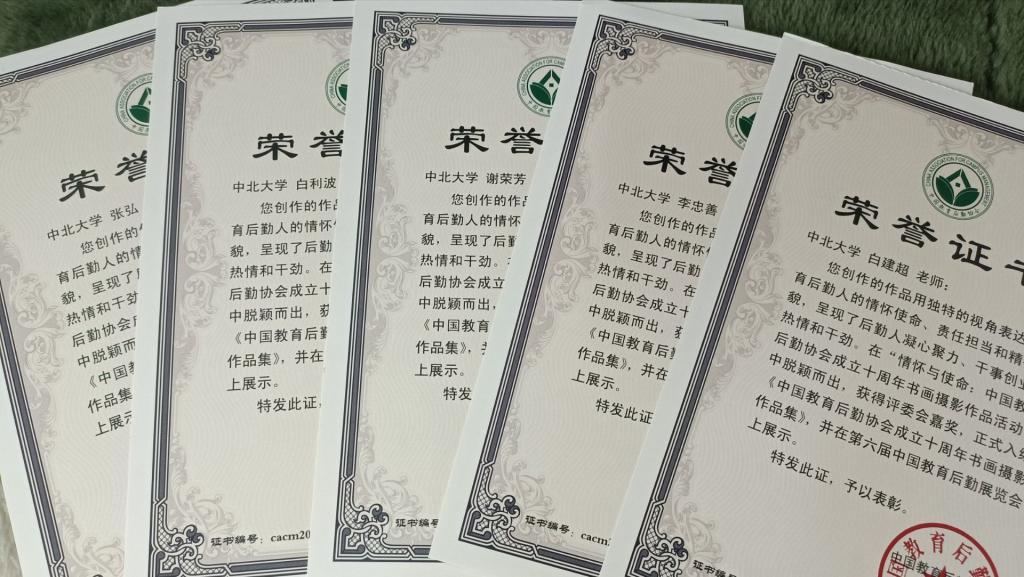 荣誉
中北大学 张弘
您创作的作
育后勤人的情怀
貌，呈现了后勤
热情和干劲。在
后勤协会成立十
中脱颖而出，
《中国教育
作品集》，并
上展示
荣誉
中北大学 白利波
您创作的作品
育后勤人的情怀
貌，呈现了后勤
热情和干劲。在
后勤协会成立十
中脱颖而出，获
《中国教育后勤
作品集》，并在
上展示。
特发此证，
证书编号：cacm20
荣誉
中北大学 谢荣芳
您创作的作品
育后勤人的情怀
貌，呈现了后勤
热情和干劲。
后勤协会成立十
中脱颖而出，
《中国教育后
作品集》，并
上展示。
特发此
证书编号
荣誉
中北大学 李忠善
您创作的作品
育后勤人的情怀
貌，呈现了后
热情和干劲。在
后勤协会成立
中脱颖而出，
《中国教育后
作品集》，并在
上展示。
特发此证
证书编号：cacm
CHINA ASSOCIATION FOR CAMPUS MANAGEMENT
荣誉证
中北大学 白建超 老师：
您创作的作品用独特的视角表达
育后勤人的情怀使命、责任担当和精
貌，呈现了后勤人凝心聚力、干事创业
热情和干劲。在“情怀与使命：中国教
后勤协会成立十周年书画摄影作品活动
中脱颖而出，获得评委会嘉奖，正式入
《中国教育后勤协会成立十周年书画摄影
作品集》，并在第六届中国教育后勤展览会
上展示。
特发此证，予以表彰。
国教育后勤
中国教育
证书编号